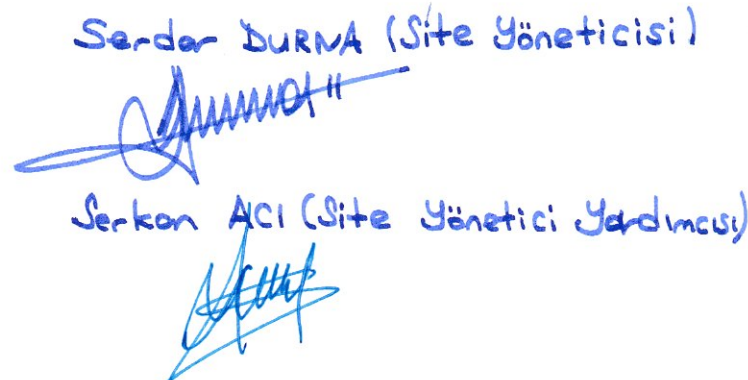 Serdar DURNA (Site Yöneticisi)
Serkan ACI (Site Yönetici Yardımcısı)